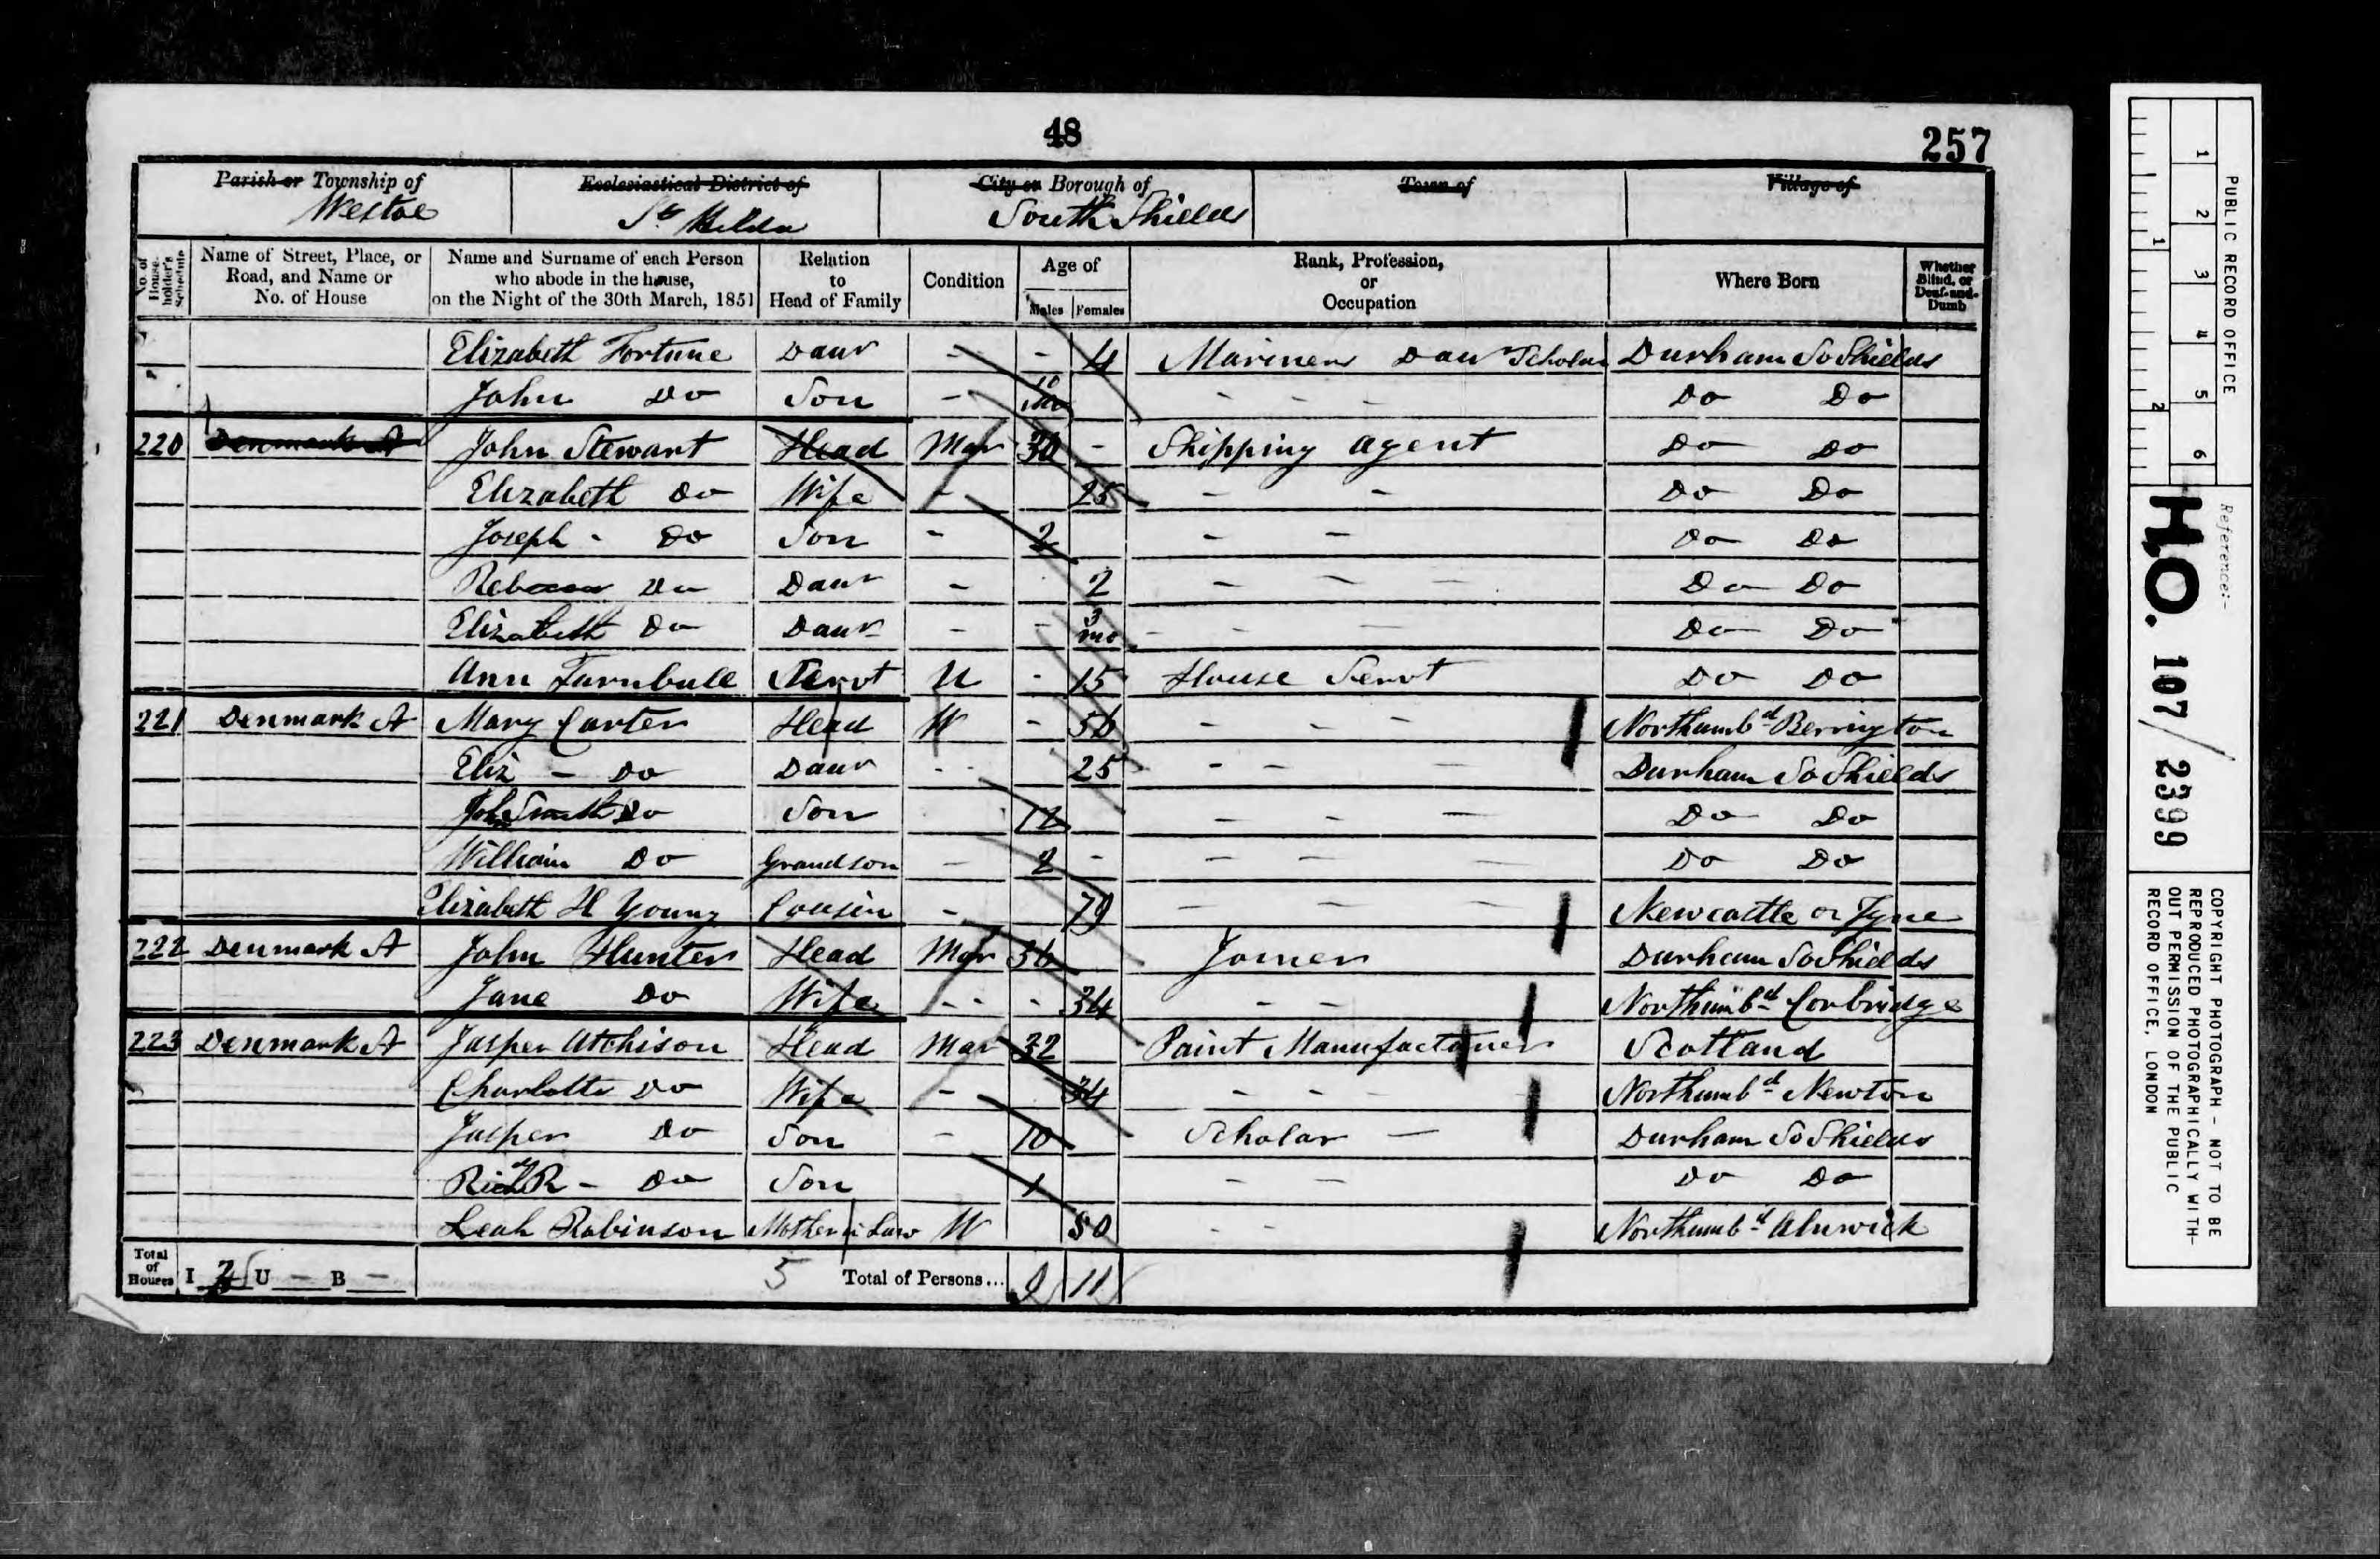 48
257
Parish or Township of
Westoe
Ecclesiastical District of
St. Hilda
City or Borough of
South Shields
Town of
Village of
No. of House-holder's Schedule
Name of Street, Place, or Road, and Name or No. of House
Name and Surname of each Person who abode in the house, on the Night of the 30th March, 1851
Relation to Head of Family
Condition
Age of
Males Females
Rank, Profession, or Occupation
Where Born
Whether Blind, or Deaf-and-Dumb
Elizabeth Fortune Daur - - 4 Mariners Daur Scholar Durham So Shields
John Do Son - 10 mo - - - Do Do
220 Denmark St John Stewart Head Mar 30 - Shipping Agent Do Do
Elizabeth Do Wife - 25 - - Do Do
Joseph - Do Son - 2 - - Do Do
Rebecca Do Daur - 2 - - - Do Do
Elizabeth Do Daur - - 3 mo - - - Do Do
Ann Turnbull Servt U - 15 House Servt Do Do
221 Denmark St Mary Carter Head W - 56 - - - Northumbd Berrington
Eliz - Do Daur - - 25 - - - Durham So Shields
John Smith Do Son 12 - - - Do Do
William Do Grandson - 2 - - - - Do Do
Elizabeth H Young Cousin - 79 - - - Newcastle on Tyne
222 Denmark St John Hunter Head Mar 36 Joiner Durham So Shields
Jane Do Wife - - - 34 - - Northumbd Corbridge
223 Denmark St Jasper Atchison Head Mar 32 Paint Manufacturer Scotland
Charlotte Do Wife - 34 - - - Northumbd Newton
Jasper Do Son - 10 Scholar - Durham So Shields
Richd R - Do Son 1 - - Do Do
Leah Robinson Mother in Law W 80 - - Northumbd Alnwick
Total of Houses I U - B -
5
Total of Persons... 9 11
PUBLIC RECORD OFFICE
1 2 3 4 5 6
1 2
Reference:-
H.O. 107/2399
COPYRIGHT PHOTOGRAPH - NOT TO BE
REPRODUCED PHOTOGRAPHICALLY WITH-
OUT PERMISSION OF THE PUBLIC
RECORD OFFICE, LONDON